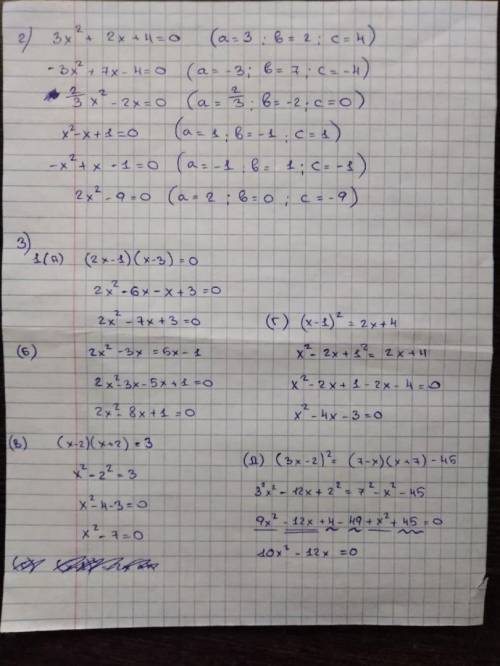 2) 3x² + 2x + 4 = 0 (a = 3 ; в = 2 ; c = 4)
-3x² + 7x - 4 = 0 (a = -3 ; в = 7 ; c = -4)
2/3 x² - 2x = 0 (a = 2/3 ; в = -2 ; c = 0)
x² - x + 1 = 0 (a = 1 ; в = -1 ; c = 1)
-x² + x - 1 = 0 (a = -1 ; в = 1 ; c = -1)
2x² - 9 = 0 (a = 2 ; в = 0 ; c = -9)
3)
1(А) (2x-1)(x-3) = 0
2x² - 6x - x + 3 = 0
2x² - 7x + 3 = 0
(Б) 2x² - 3x = 5x - 1
2x² - 3x - 5x + 1 = 0
2x² - 8x + 1 = 0
(В) (x-2)(x+2) = 3
x² - 2² = 3
x² - 4 - 3 = 0
x² - 7 = 0
(Г) (x-1)² = 2x + 4
x² - 2x + 1² = 2x + 4
x² - 2x + 1 - 2x - 4 = 0
x² - 4x - 3 = 0
(Д) (3x-2)² = (7-x)(x+7) - 45
3²x² - 12x + 2² = 7² - x² - 45
9x² - 12x + 4 - 49 + x² + 45 = 0
10x² - 12x = 0